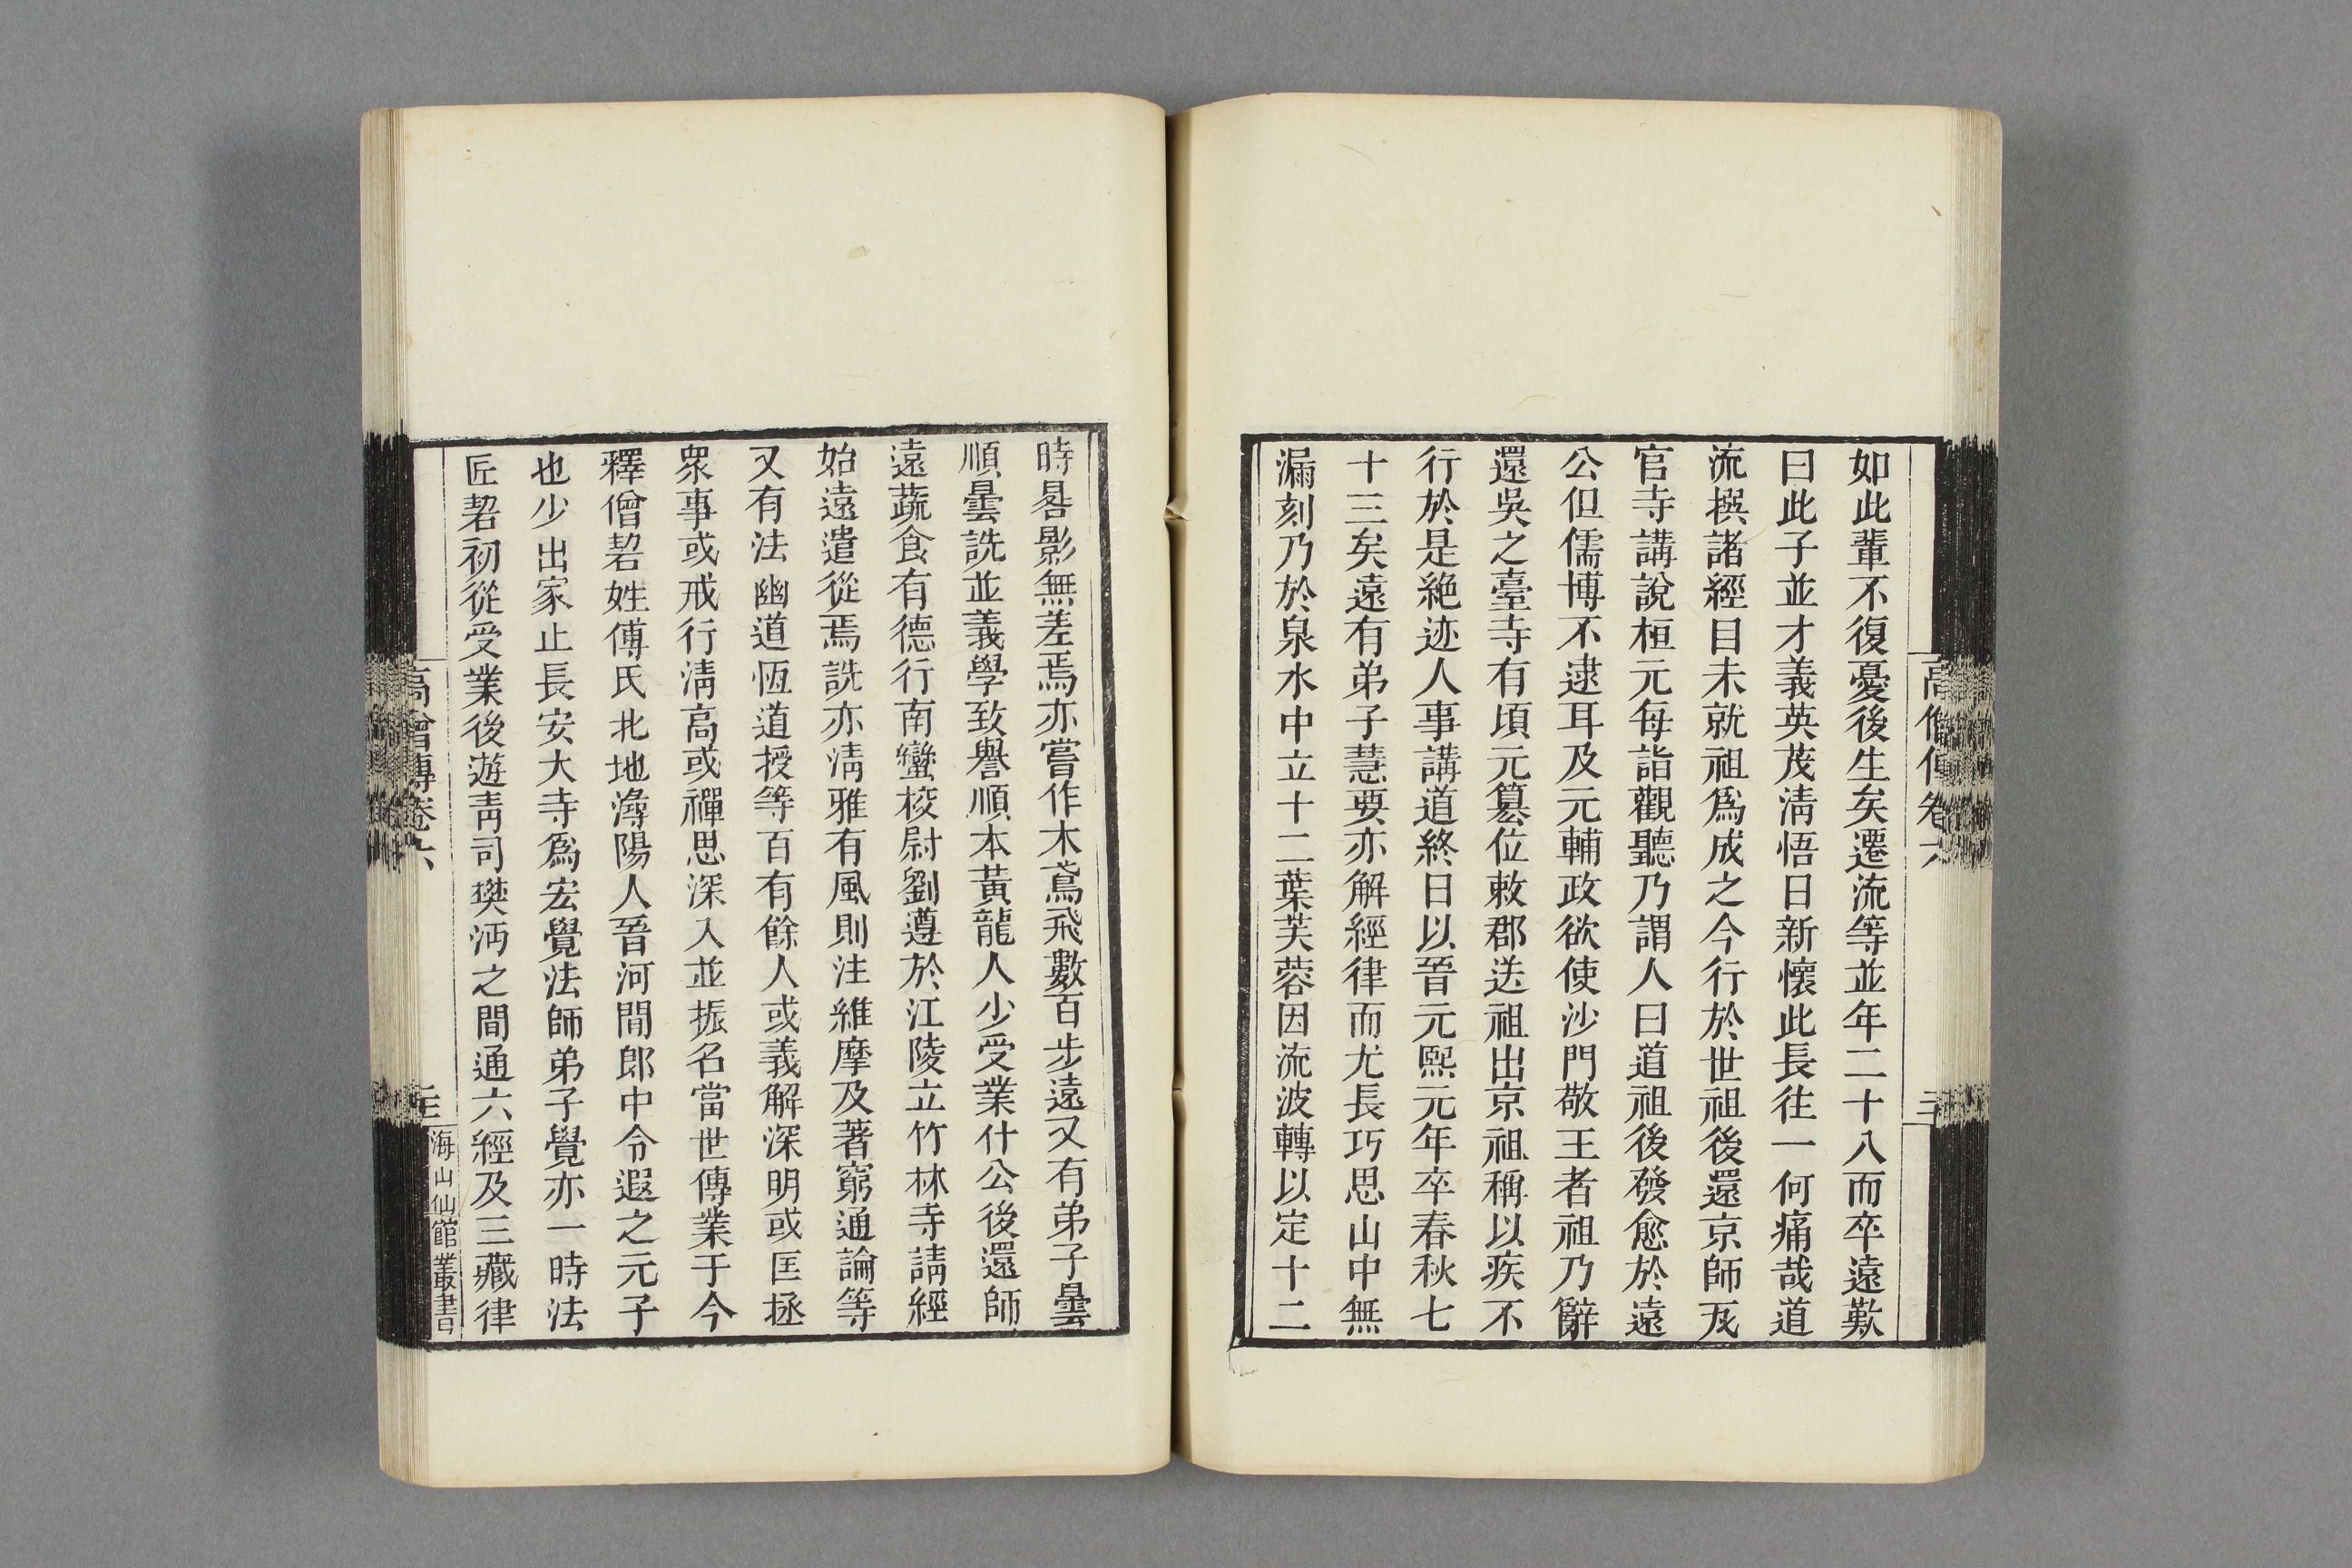 如此輩不復憂後生矣遷流等並年二十八而卒遠歎
曰此子並才義英茂淸悟日新懷此長往一何痛哉道
流撰諸經目未就祖爲成之今行於世祖後還京師瓦
官寺講說桓元每詣觀聽乃謂人曰道祖後發愈於遠
公但儒博不逮耳及元輔政欲使沙門敬王者祖乃辭
還吳之臺寺有頃元篡位敕郡送祖出京祖稱以疾不
行於是絶迹人事講道終日以晉元熙元年卒春秋七
十三矣遠有弟子慧要亦解經律而尤長巧思山中無
漏刻乃於泉水中立十二葉芙蓉因流波轉以定十二
時晷影無差焉亦嘗作木鳶飛數百步遠又有弟子曇
順曇詵並義學致譽順本黃龍人少受業什公後還師
遠蔬食有德行南蠻校尉劉遵於江陵立竹林寺請經
始遠遣從焉詵亦淸雅有風則注維摩及著窮通論等
又有法幽道恆道授等百有餘人或義解深明或匡拯
衆事或戒行淸高或禪思深入並振名當世傳業于今
釋僧䂮姓傅氏北地潯陽人晉河間郎中令遐之元子
也少出家止長安大寺爲宏覺法師弟子覺亦一時法
匠䂮初從受業後遊靑司樊沔之間通六經及三藏律
高僧傳卷六
海山仙館叢書